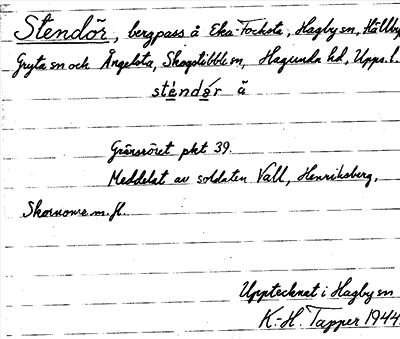 Stendör, bergpass å Eka-Focksta, Hagby sn, Hällby,
Gryta sn och Ängelsta, Skogstibble sn, Hagunda hd, Upps. l.
sténdər ä
Gränsröset pkt 39.
Meddelat av soldaten Vall, Henriksberg,
m. fl.
Upptecknat i Hagby sn
K.-H. Tapper 1944.